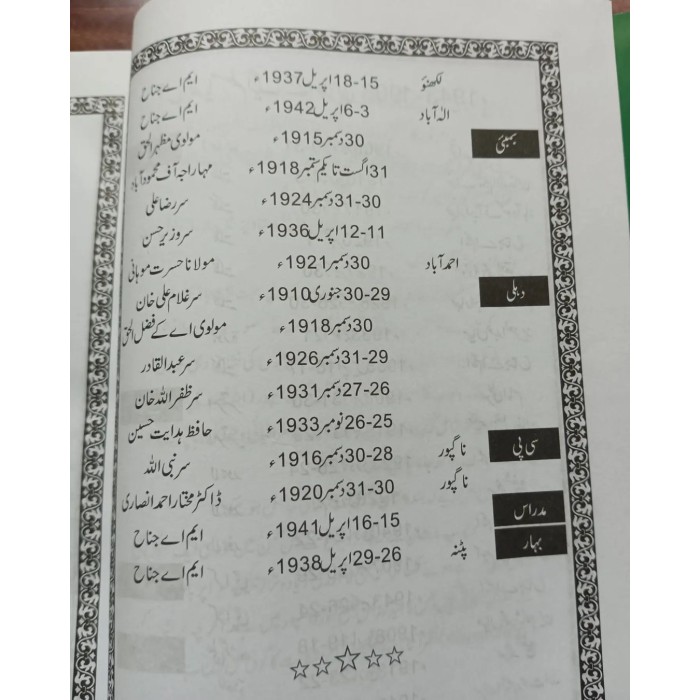 لکھنؤ 15-18 اپریل 1937ء ایم اے جناح
الہٰ آباد 3-6 اپریل 1942ء ایم اے جناح
بمبئی 30 دسمبر 1915ء مولوی مظہر الحق
31 اگست تا یکم ستمبر 1918ء مہاراجہ آف محمود آباد
30-31 دسمبر 1924ء سر رضا علی
11-12 اپریل 1936ء سر وزیر حسن
احمد آباد 30 دسمبر 1921ء مولانا حسرت موہانی
دہلی 29-30 جنوری 1910ء سر غلام علی خان
30 دسمبر 1918ء مولوی اے کے فضل الحق
29-31 دسمبر 1926ء سر عبدالقادر
26-27 دسمبر 1931ء سر ظفر اللہ خان
25-26 نومبر 1933ء حافظ ہدایت حسین
سی پی ناگپور 28-30 دسمبر 1916ء سر نبی اللہ
ناگپور 30-31 دسمبر 1920ء ڈاکٹر مختار احمد انصاری
مدراس 15-16 اپریل 1941ء ایم اے جناح
بہار پٹنہ 26-29 اپریل 1938ء ایم اے جناح